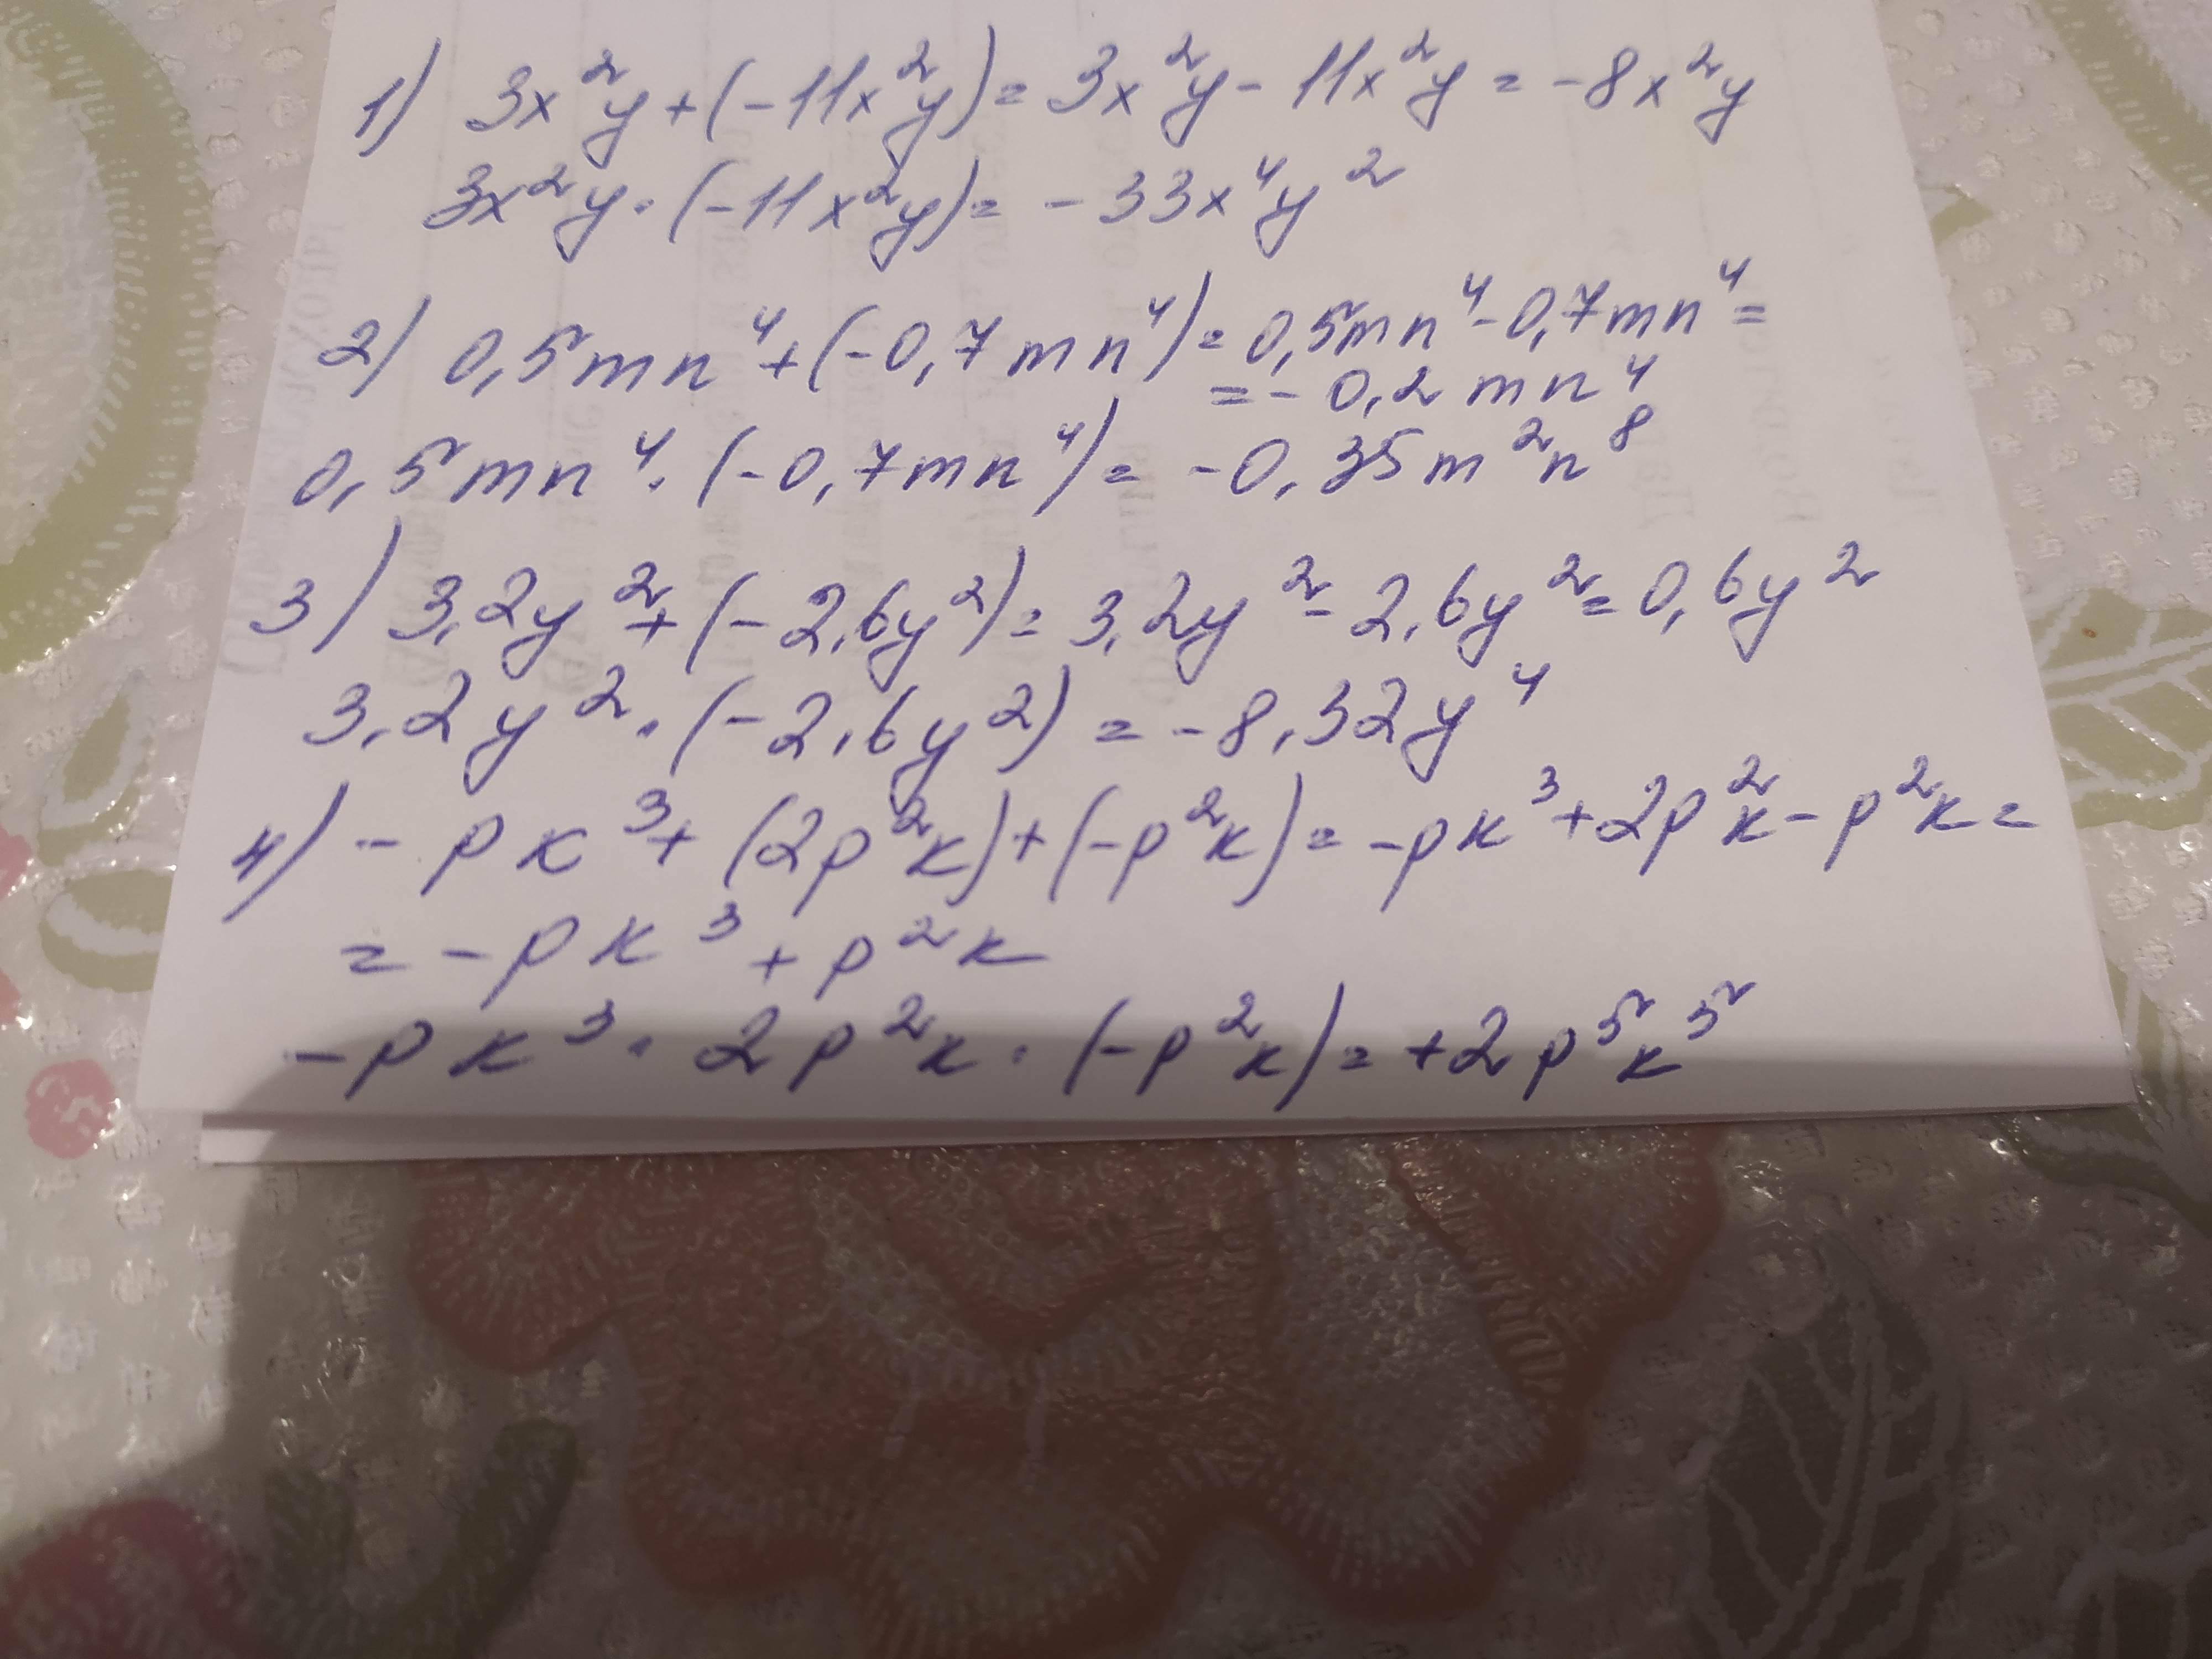 1) 3x²y+(-11x²y)=3x²y-11x²y=-8x²y
3x²y·(-11x²y)=-33x⁴y²
2) 0,5mn⁴+(-0,7mn⁴)=0,5mn⁴-0,7mn⁴=
=-0,2mn⁴
0,5mn⁴·(-0,7mn⁴)=-0,35m²n⁸
3) 3,2y²+(-2,6y²)=3,2y²-2,6y²=0,6y²
3,2y²·(-2,6y²)=-8,32y⁴
4) -pk³+(2p²k)+(-p²k)=-pk³+2p²k-p²k=
=-pk³+p²k
-pk³·2p²k·(-p²k)=+2p⁵k⁵